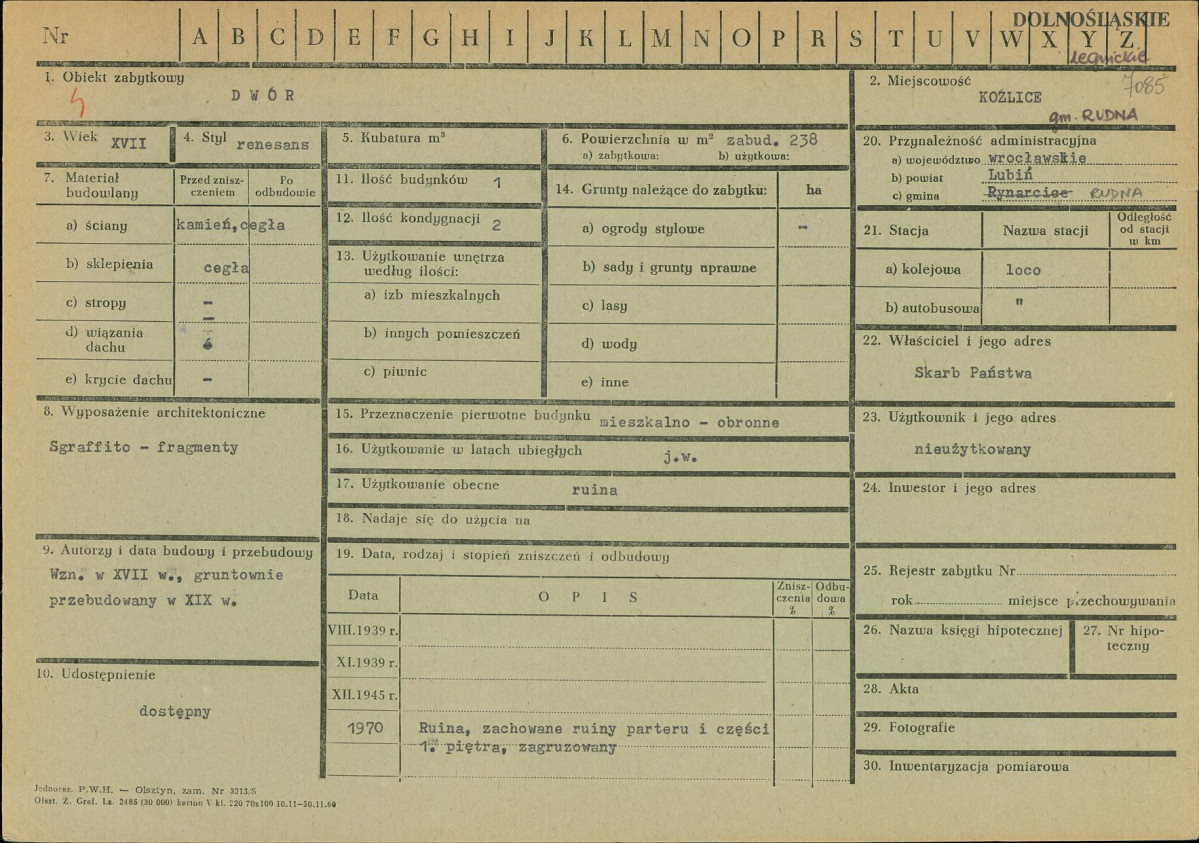 DOLNOŚLĄSKIE
Nr A B C D E F G H I J K L M N O P R S T U V W X Y Z
legnickie
1. Obiekt zabytkowy
DWÓR
2. Miejscowość
7085
KOŹLICE
gm. RUDNA
3. Wiek XVII
4. Styl renesans
5. Kubatura m³
6. Powierzchnia w m² zabud. 238
a) zabytkowa: b) użytkowa:
7. Materiał budowlany
Przed zniszczeniem
Po odbudowie
a) ściany kamień, cegła
b) sklepienia cegła
c) stropy –
d) wiązania dachu
e) krycie dachu –
8. Wyposażenie architektoniczne
Sgraffito – fragmenty
9. Autorzy i data budowy i przebudowy
Wzn. w XVII w., gruntownie
przebudowany w XIX w.
10. Udostępnienie
dostępny
11. Ilość budynków 1
12. Ilość kondygnacji 2
13. Użytkowanie wnętrza
według ilości:
a) izb mieszkalnych
b) innych pomieszczeń
c) piwnic
14. Grunty należące do zabytku: ha
a) ogrody stylowe –
b) sady i grunty uprawne
c) lasy
d) wody
e) inne
15. Przeznaczenie pierwotne budynku mieszkalno – obronne
16. Użytkowanie w latach ubiegłych j.w.
17. Użytkowanie obecne ruina
18. Nadaje się do użycia na
19. Data, rodzaj i stopień zniszczeń i odbudowy
Data OPIS Zniszczenia % Odbudowa %
VIII.1939 r.
XI.1939 r.
XII.1945 r.
1970 Ruina, zachowane ruiny parteru i części
1. piętra, zagruzowany
20. Przynależność administracyjna
a) województwo wrocławskie
b) powiat Lubiń
c) gmina Rynarcice RUDNA
21. Stacja Nazwa stacji Odległość od stacji w km
a) kolejowa loco
b) autobusowa "
22. Właściciel i jego adres
Skarb Państwa
23. Użytkownik i jego adres
nieużytkowany
24. Inwestor i jego adres
25. Rejestr zabytku Nr
rok miejsce przechowywania
26. Nazwa księgi hipotecznej
27. Nr hipoteczny
28. Akta
29. Fotografie
30. Inwentaryzacja pomiarowa
Jednoraz. P.W.H. — Olsztyn, zam. Nr 3215/S
Olszt. Z. Graf. Lz. 2485 (30 000) karton V kl. 220 70x100 10.11—30.11.60